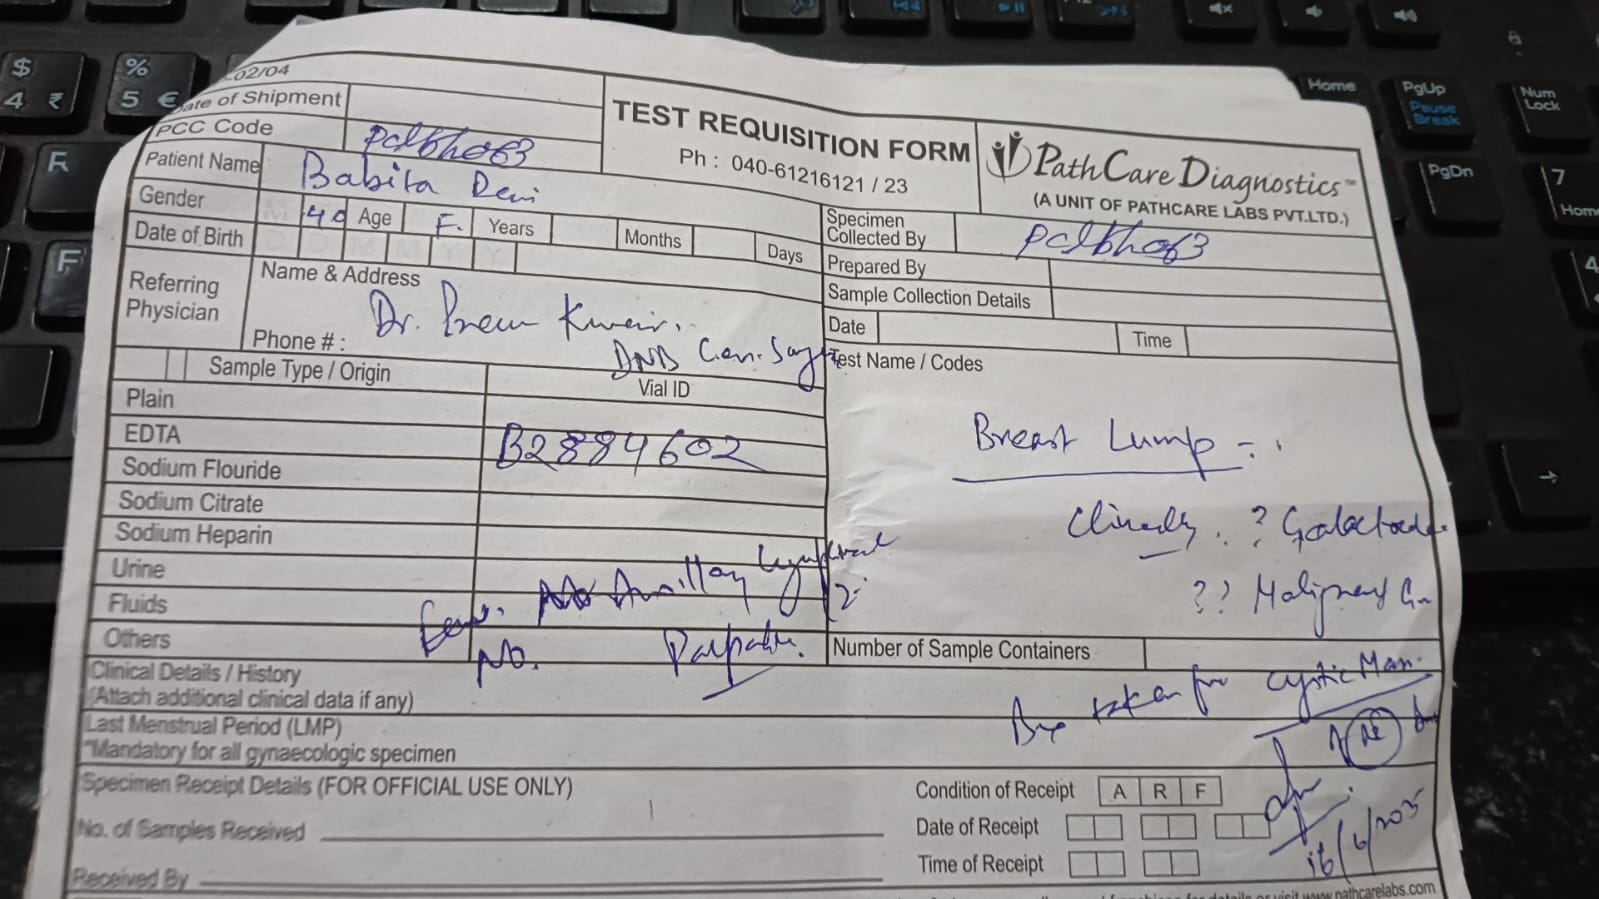 -02/04
Date of Shipment
PCC Code pclbh063
TEST REQUISITION FORM
Ph : 040-61216121 / 23
PathCare Diagnostics™
(A UNIT OF PATHCARE LABS PVT.LTD.)
Patient Name Babita Devi
Gender M 40 Age F. Years Months Days
Date of Birth D D M M Y Y
Specimen Collected By pclbh063
Prepared By
Sample Collection Details
Date Time
Referring Physician
Name & Address
Dr. Prem Kumar.
Phone # : DNB Gen. Surg
Sample Type / Origin Vial ID
Plain
EDTA B2884602
Sodium Flouride
Sodium Citrate
Sodium Heparin
Urine
Fluids
Others
No. Axillary Lymphnode
Palpable.
Test Name / Codes
Breast Lump
Clinically ? Galactocele
?? Malignant
Number of Sample Containers
Clinical Details / History
(Attach additional clinical data if any)
taken from Cystic Mass.
Last Menstrual Period (LMP)
*Mandatory for all gynaecologic specimen
Specimen Receipt Details (FOR OFFICIAL USE ONLY)
No. of Samples Received
Received By
Condition of Receipt A R F
Date of Receipt
Time of Receipt
16/6/2025
www.pathcarelabs.com
$ 4 ₹
% 5 €
R
F
Home
PgUp
Pause Break
Num Lock
PgDn
7 Home
4